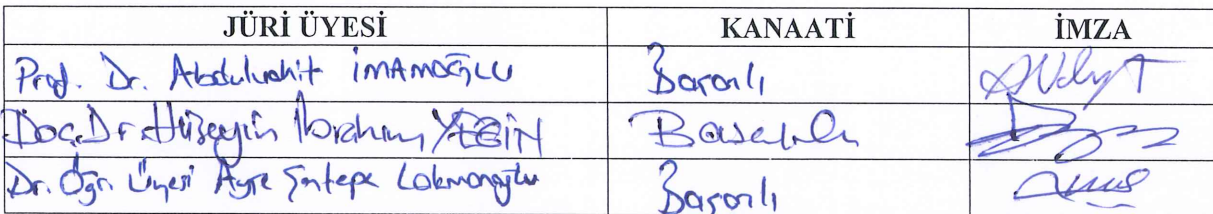 JÜRİ ÜYESİ KANAATİ İMZA
Prof. Dr. Abdulvahit İMAMOĞLU Başarılı
Doç. Dr. Hüseyin İbrahim YEĞİN Başarılı
Dr. Öğr. Üyesi Ayşe Şentepe Lokmanoğlu Başarılı